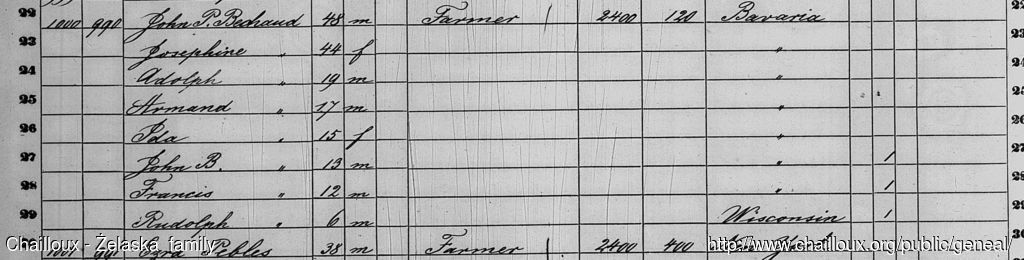 22 1000 990 John P. Bechaud 48 m Farmer 1 2400 120 Bavaria 22
23 Josephine " 44 f " 23
24 Adolph " 19 m " 24
25 Armand " 17 m " 25
26 Ida " 15 f " 26
27 John B. " 13 m " 1 27
28 Francis " 12 m " 1 28
29 Rudolph " 6 m Wisconsin 1 29
1001 991 Ezra Pebles 38 m Farmer 1 2400 400 30
Chailloux - Żelaska family
http://www.chailloux.org/public/geneal/